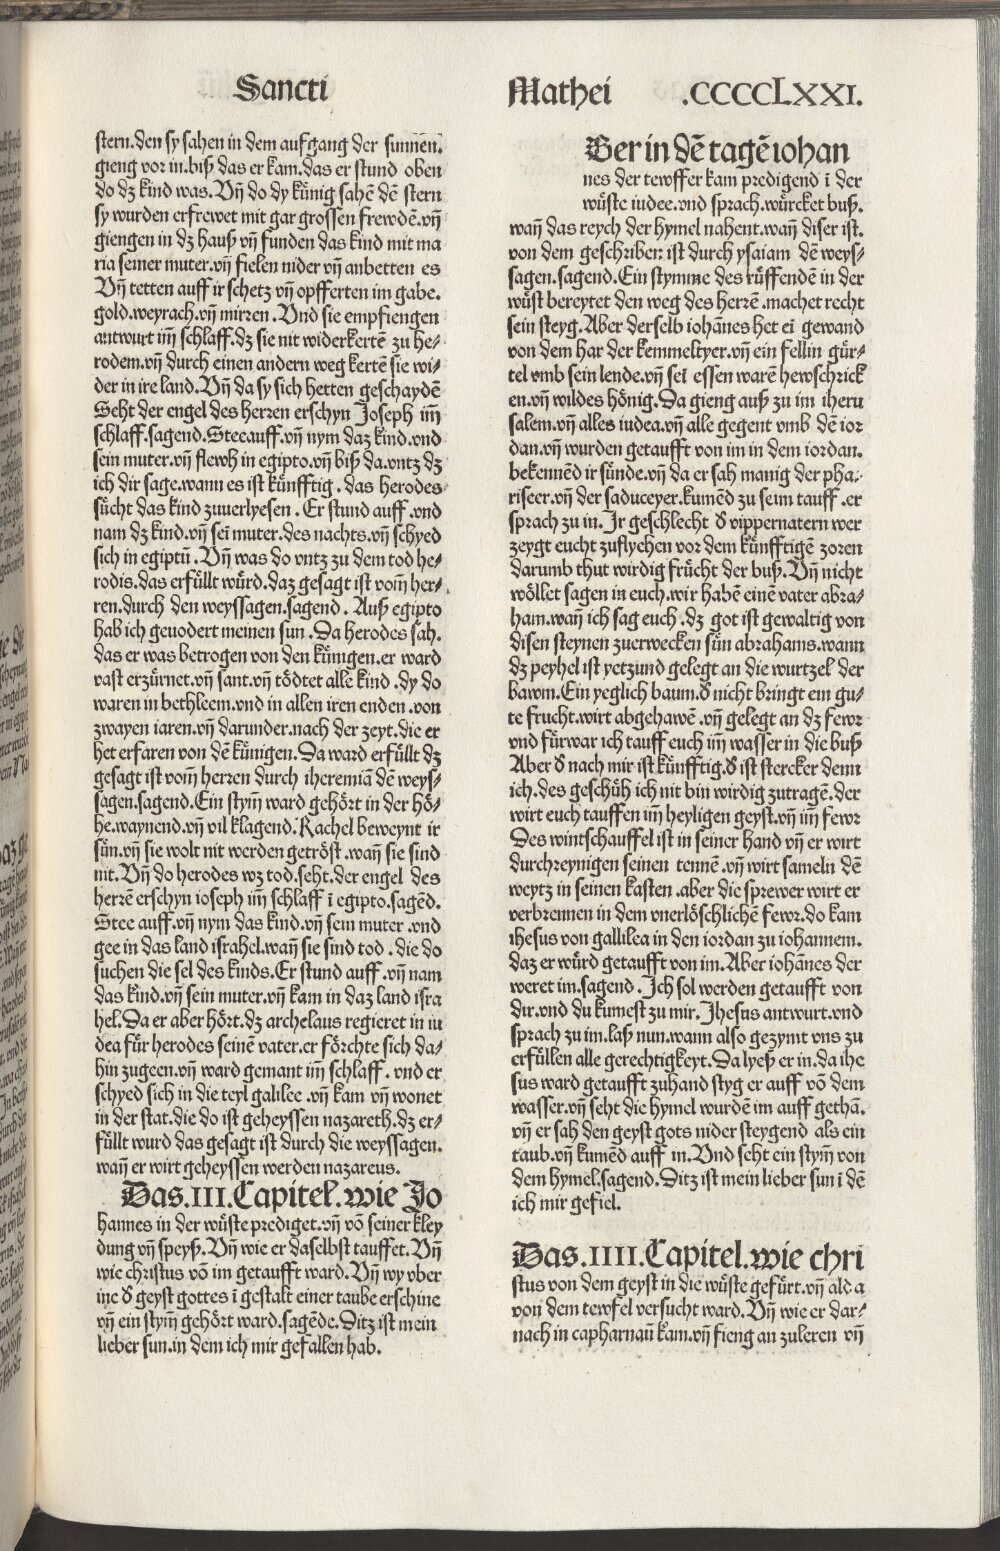 Sancti
Mathei .CCCCCLXXI.
stern.den sy sahen in dem aufgang der sunnen.
gieng vor in.biß das er kam.das er stund oben
do dz kind was. Vñ do dy künig sahẽ dẽ stern
sy wurden erfrewet mit gar grossen frewdẽ.vñ
giengen in dz hauß vñ funden das kind mit ma
ria seiner muter.vñ fielen nider vñ anbetten es
Vñ tetten auff ir schetz vñ opfferten im gabe.
gold.weyrach.vñ mirren. Vnd sie empfiengen
antwurt im̃ schlaff.dz sie nit widerkertẽ zu he⸗
rodem.vñ durch einen andern weg kertẽ sie wi⸗
der in ire land. Vñ da sy sich hetten geschaydẽ
Seht der engel des herren erschyn Joseph im̃
schlaff.sagend.Stee auff.vñ nym daz kind.vnd
sein muter.vñ flewh in egipto.vñ biß da.vntz dz
ich dir sage.wann es ist künfftig. das herodes
sücht das kind zuuerlyesen. Er stund auff.vnd
nam dz kind.vñ sei᷑ muter.des nachts.vñ schyed
sich in egiptũ. Vñ was do vntz zu dem tod he⸗
rodis.das erfüllt würd.daz gesagt ist vom̃ her⸗
ren.durch den weyssagen.sagend. Auß egipto
hab ich geuodert meinen sun. Da herodes sah.
das er was betrogen von den künigen.er ward
vast erzürnet.vñ sant.vñ tödtet alle kind.dy do
waren in bethleem.vnd in allen iren enden.von
zwayen iaren.vñ darunder.nach der zeyt.die er
het erfaren von dẽ künigen. Da ward erfüllt dz
gesagt ist vom̃ herren durch iheremiã dẽ weys⸗
sagen.sagend.Ein stym̃ ward gehört in der hö⸗
he.waynend.vñ vil klagend. Rachel beweynt ir
sün.vñ sie wolt nit werden getröst.wañ sie sind
nit. Vñ do herodes wz tod.seht.der engel des
herrẽ erschyn ioseph im̃ schlaff ĩ egipto.sagẽd.
Stee auff.vñ nym das kind.vñ sein muter.vnd
gee in das land israhel.wañ sie sind tod. die do
suchen die sel des kinds.Er stund auff.vñ nam
das kind.vñ sein muter.vñ kam in daz land isra
hel.Da er aber hört.dz archelaus regieret in iu
dea für herodes seinẽ vater.er förchte sich da⸗
hin zugeen.vñ ward gemant im̃ schlaff. vnd er
schyed sich in die teyl galilee.vñ kam vñ wonet
in der stat.die do ist geheyssen nazareth.dz er⸗
füllt wurd das gesagt ist durch die weyssagen.
wañ er wirt geheyssen werden nazareus.
Das.III.Capitel.wie Jo
hannes in der wüste prediget.vñ võ seiner kley
dung vñ speyß. Vñ wie er daselbst tauffet. Vñ
wie christus võ im getaufft ward. Vñ wy vber
ine d geyst gottes ĩ gestalt einer taube erschine
vñ ein stym̃ gehört ward.sagẽde. Ditz ist mein
lieber sun.in dem ich mir gefallen hab.
Ber in dẽ tagẽ iohan
nes der tewffer kam predigend ĩ der
wüste iudee.vnd sprach.würcket buß.
wañ das reych der hymel nahent.wañ diser ist.
von dem geschriben ist durch ysaiam dẽ weys⸗
sagen.sagend.Ein stymme des rüffendẽ in der
wüst bereytet den weg des herrẽ.machet recht
sein steyg. Aber derselb iohãnes het ei᷑ gewand
von dem har der kemmeltyer.vñ ein fellin gür⸗
tel vmb sein lende.vñ sei᷑ essen warẽ hewschrick
en.vñ wildes hönig. Da gieng auß zu im iheru
salem.vñ alles iudea.vñ alle gegent vmb dẽ ior
dan.vñ wurden getaufft von im in dem iordan.
bekennẽd ir sünde.vñ da er sah manig der pha⸗
riseer.vñ der saduceyer.kumẽd zu seim tauff.er
sprach zu in. Ir geschlecht d vippernatern wer
zeygt eucht zuflyehen vor dem künfftigẽ zoren
darumb thut wirdig frücht der buß. Vñ nicht
wöllet sagen in euch.wir habẽ einẽ vater abra⸗
ham.wañ ich sag euch.dz got ist gewaltig von
disen steynen zuerwecken sün abrahams.wann
dz peyhel ist yetzund gelegt an die wurtzel der
bawm.Ein yeglich baum.d nicht bringt ein gu⸗
te frucht.wirt abgehawẽ.vñ gelegt an dz fewr
vnd fürwar ich tauff euch im̃ wasser in die buß
Aber d nach mir ist künfftig.d ist stercker denn
ich.des geschüh ich nit bin wirdig zutragẽ.der
wirt euch tauffen im̃ heyligen geyst.vñ im̃ fewr
Des wintschauffel ist in seiner hand vñ er wirt
durchreynigen seinen tennẽ.vñ wirt sameln dẽ
weytz in seinen kasten.aber die sprewer wirt er
verbrennen in dem vnerlöschlichẽ fewr.do kam
ihesus von gallilea in den iordan zu iohannem.
daz er würd getaufft von im. Aber iohãnes der
weret im.sagend. Ich sol werden getaufft von
dir.vnd du kumest zu mir. Jhesus antwurt.vnd
sprach zu im.laß nun.wann also gezymt vns zu
erfüllen alle gerechtigkeyt. Da lyeß er in.da ihe
sus ward getaufft zuhand styg er auff võ dem
wasser.vñ seht die hymel wurdẽ im auff gethã.
vñ er sah den geyst gots nider steygend als ein
taub.vñ kumẽd auff in. Vnd seht ein stym̃ von
dem hymel.sagend.Ditz ist mein lieber sun ĩ dẽ
ich mir gefiel.
Das.IIII.Capitel.wie chri
stus von dem geyst in die wüste gefürt.vñ alda
von dem tewfel versucht ward. Vñ wie er dar⸗
nach in capharnaũ kam.vñ fieng an zuleren vñ